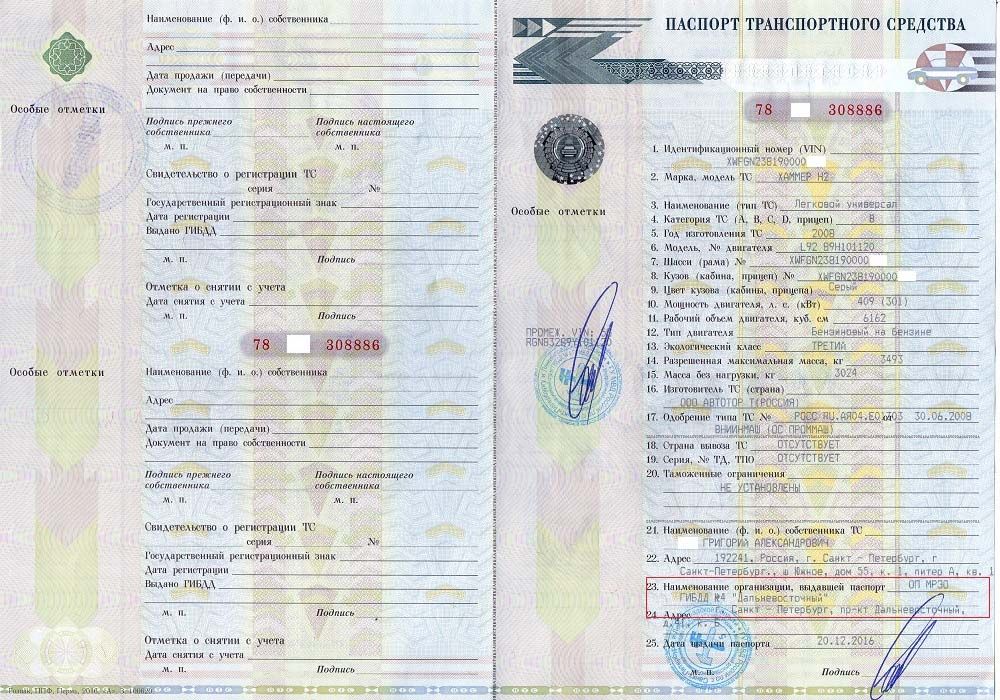 Наименование (ф. и. о.) собственника
Адрес
Дата продажи (передачи)
Документ на право собственности
Особые отметки
Подпись прежнего собственника
Подпись настоящего собственника
м. п.
м. п.
Свидетельство о регистрации ТС
серия №
Государственный регистрационный знак
Дата регистрации
Выдано ГИБДД
м. п. Подпись
Отметка о снятии с учета
Дата снятия с учета
м. п. Подпись
78 308886
Наименование (ф. и. о.) собственника
Особые отметки
Адрес
Дата продажи (передачи)
Документ на право собственности
Подпись прежнего собственника
Подпись настоящего собственника
м. п.
м. п.
Свидетельство о регистрации ТС
серия №
Государственный регистрационный знак
Дата регистрации
Выдано ГИБДД
м. п. Подпись
Отметка о снятии с учета
Дата снятия с учета
м. п. Подпись
ПАСПОРТ ТРАНСПОРТНОГО СРЕДСТВА
78 308886
Особые отметки
ПРОМЕЖ. VIN:
1. Идентификационный номер (VIN)
XWFGN23B190000
2. Марка, модель ТС ХАММЕР H2
3. Наименование (тип ТС) Легковой универсал
4. Категория ТС (A, B, C, D, прицеп) B
5. Год изготовления ТС 2008
6. Модель, № двигателя L92 89H101120
7. Шасси (рама) № XWFGN23B190000
8. Кузов (кабина, прицеп) № XWFGN23B190000
9. Цвет кузова (кабины, прицепа) Серый
10. Мощность двигателя, л. с. (кВт) 409 (301)
11. Рабочий объем двигателя, куб. см 6162
12. Тип двигателя Бензиновый на бензине
13. Экологический класс ТРЕТИЙ
14. Разрешенная максимальная масса, кг 3493
15. Масса без нагрузки, кг 3024
16. Изготовитель ТС (страна)
ООО АВТОТОР Т(РОССИЯ)
17. Одобрение типа ТС № РОСС RU.АЯ04.Е01703 от 30.06.2008
ВНИИНМАШ (ОС ПРОММАШ)
18. Страна вывоза ТС ОТСУТСТВУЕТ
19. Серия, № ТД, ТПО ОТСУТСТВУЕТ
20. Таможенные ограничения
НЕ УСТАНОВЛЕНЫ
21. Наименование (ф. и. о.) собственника ТС
ГРИГОРИЙ АЛЕКСАНДРОВИЧ
22. Адрес 192241, Россия, г. Санкт - Петербург, г
Санкт-Петербург., ш Южное, дом 55, к. 1, литер А, кв. 1
23. Наименование организации, выдавшей паспорт ОП МРЭО
ГИБДД №4 "Дальневосточный"
24. Адрес г. Санкт - Петербург, пр-кт Дальневосточный,
25. Дата выдачи паспорта 20.12.2016
м. п. Подпись